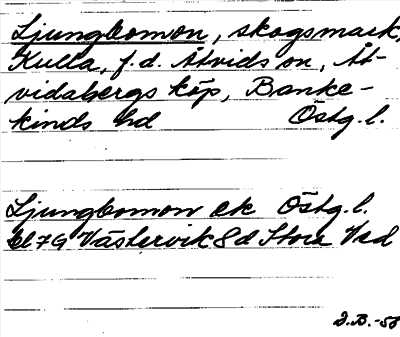 Ljungbomon, skogsmark,
Kulla, f.d. Åtvids sn, Åt-
vidabergs köp, Banke-
kinds hd Östg.l.
Ljungbomon ek Östg.l.
bl 7G Västervik 8d Stora Vrd
J.B.-56